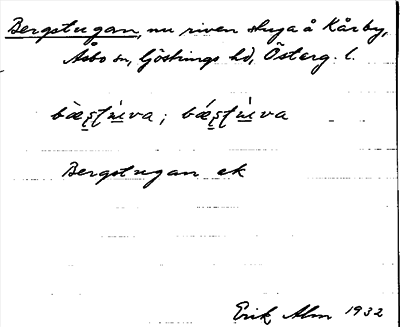 Bergstugan, nu riven stuga å Kårby,
Åsbo sn, Göstrings hd, Österg. l.
Bergstugan ek
Erik Alm 1932